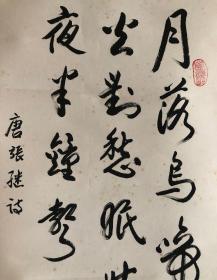 月落烏啼
火對愁眠
夜半鐘聲
唐張繼詩